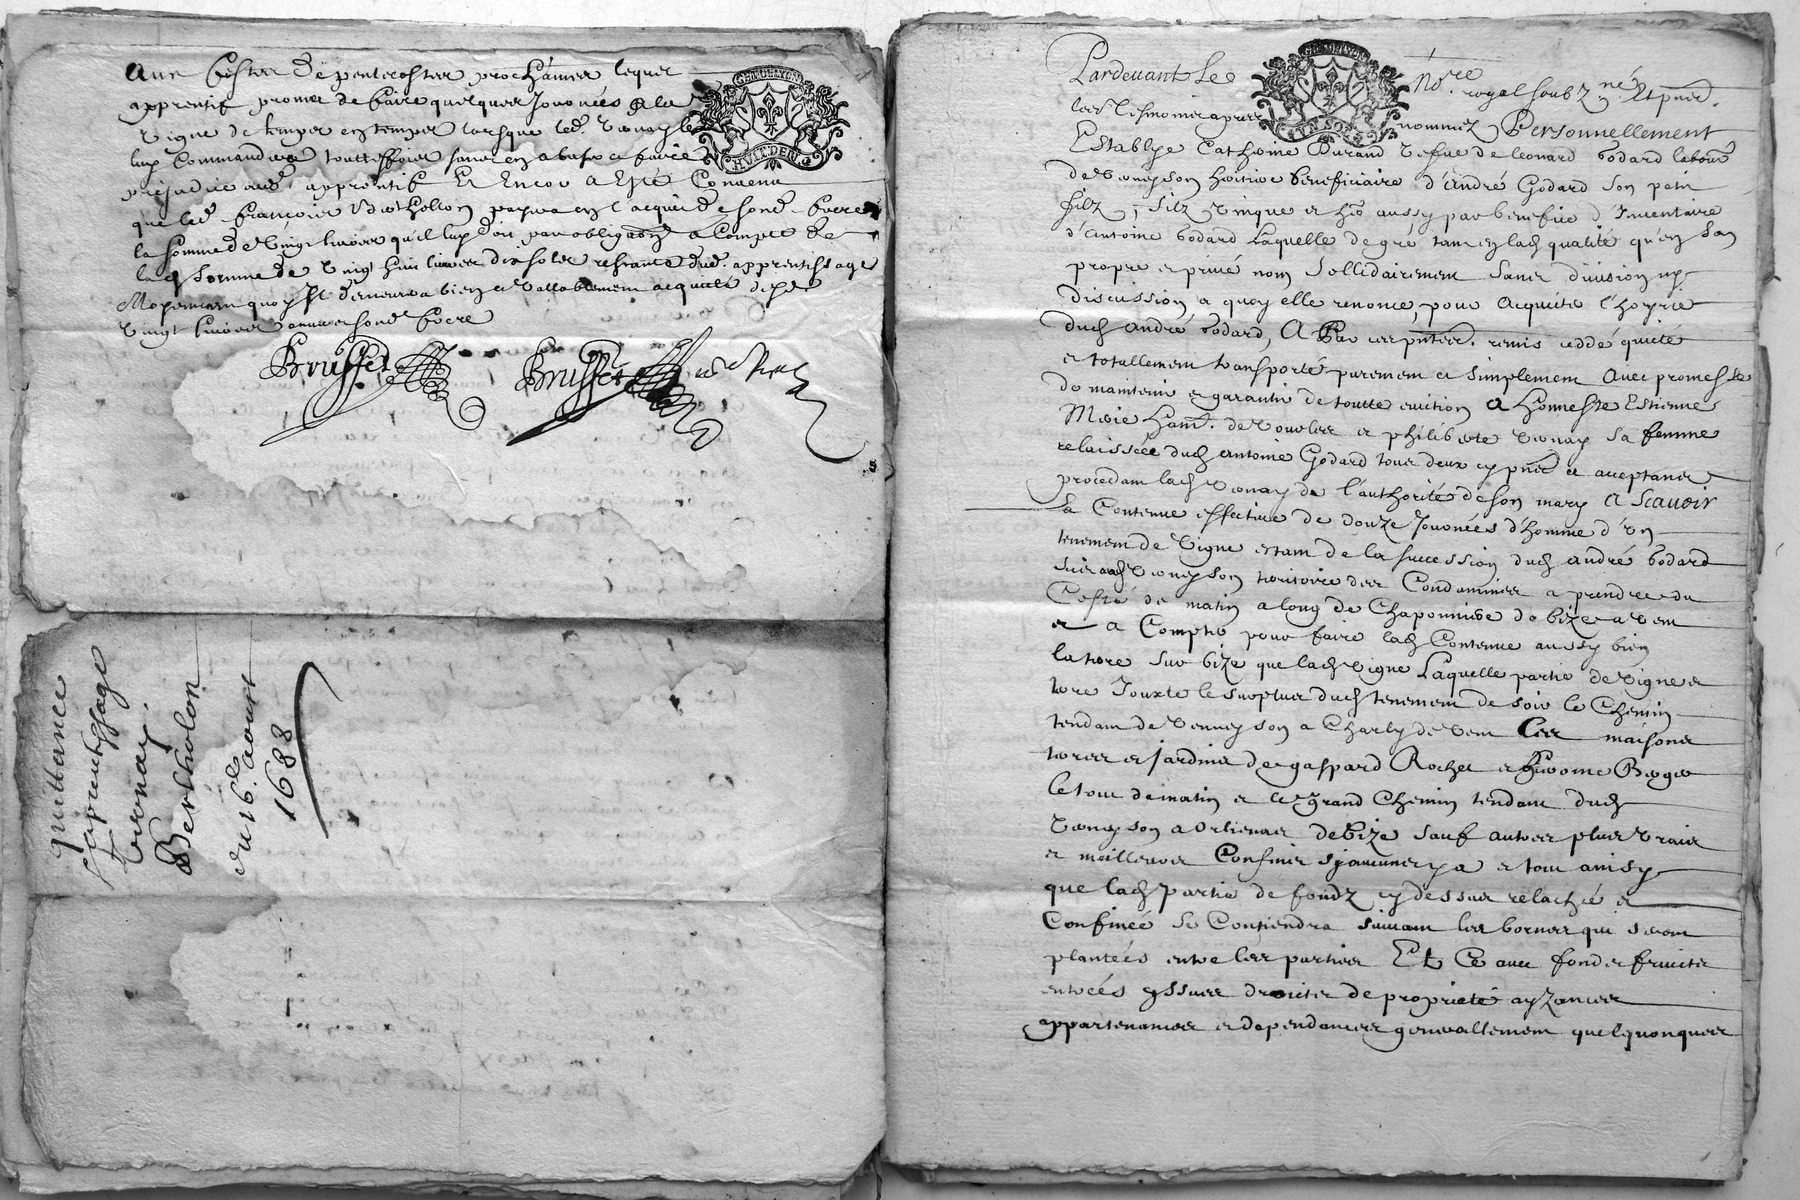 aux festes de pentecostes prochaines lequel
apprentif promet de faire quelques Journées a la
vigne de temps en temps lorsque led. vernay le
luy Commandera touttesfois sans en abuser et faire
prejudice aud. apprentif Et Encor a Esté Convenu
que led. françois Berthollon payera en l'acquit de sond. frere
la somme de vingt livres qu'il luy doit par obligaon a Compte de
lad. somme de vingt huit livres dix sols restante dud. apprentissage
Moyennant quoy Il demeurera bien et vallablement acquitté desd.
vingt livres envers sond. frere
GEN DE LYON
HUIT DEN
Brusset Brusset
quittance
d'aprentissage
vernay.
Bertholon
du 16.e aoust
1688
Pardevant Le No.re royal soubz.né Et pnts.
GEN DE LYON
UN SOL
les tesmoins apres nommez Personnellement
Establye Catherine Durand vefve de leonard Godard labour.
de vourneyson heritiere beneficiaire d'André Godard son petit
filz, filz vivque et her. aussy par benefice d'Inventaire
d'Antoine Godard Laquelle de gré tant en lad. qualité qu'en son
propre et privé nom Sollidairement sans division ny
discussion a quoy elle renonce, pour acquitter l'hoyrie
dud. André Godard, A Par ces pntes. remis ceddé quitté
et totallement transporté purement et simplement avec promesse
de maintenir et garantir de toutte eviction A Honneste Estienne
habit. de vourles et philiberte vernay sa femme
relaissée dud. Antoine Godard tous deux cy pnts et acceptants
procedant lad. vernay de l'authorité de son mary A Scavoir
La Contenue effective de douze Journées d'homme d'Un
tenement de vigne estant de la succession dud. André Godard
scis aud. territoire des Condamines a prendre du
Costé de matin a long de Chaponniere de bize a vent
et a Compter pour faire lad. Contenue aussy bien
la terre sur bize que lad. vigne Laquelle partie de vigne et
terre Jouxte le surplus dud. tenement de soir le Chemin
tendant de a Charly de vent Les maisons
terres et jardins de gaspard Rochet et
le tout de matin et le grand Chemin tendant dud.
a Orlienas de bize sauf autres plus vrais
et meilleurs Confins sy aucuns y a et tout ainsy
que lad. partie de fondz cy dessus relachée et
Confinée se Contiendra suivant les bornes qui seront
plantées entre les parties Et Ce avec fond et fruicts
entrées yssues droicts de proprieté ayzances
appartenances et dependances generallement quelquonques